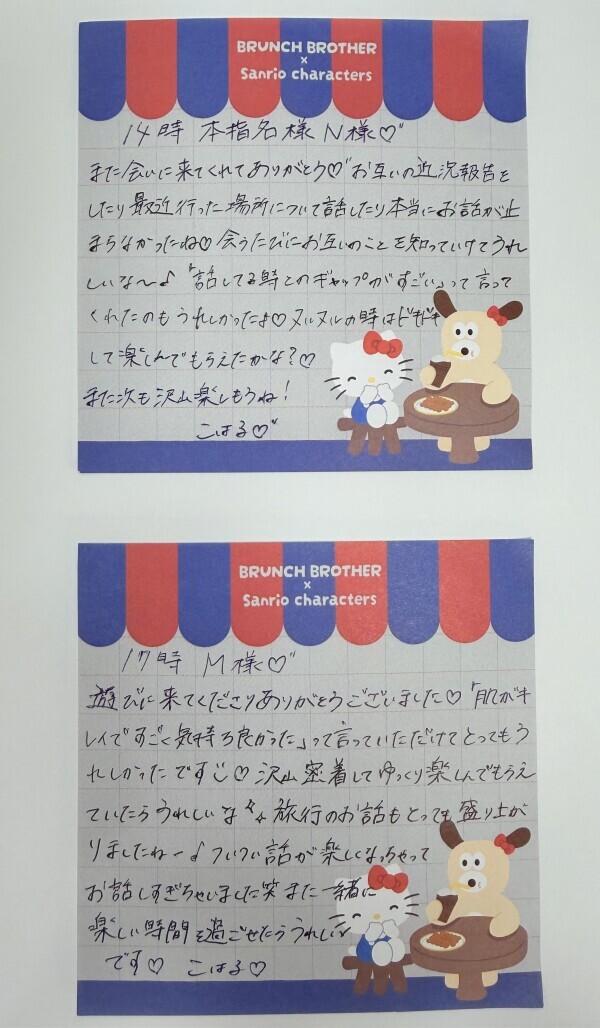 BRUNCH BROTHER
×
Sanrio characters
14時 本指名様 N様♡
また会いに来てくれてありがとう♡お互いの近況報告を
したり最近行った場所について話したり本当にお話が止
まらなかったね♡会うたびにお互いのことを知っていけてうれ
しいな〜♪「話してる時とのギャップがすごい」って言って
くれたのもうれしかったよ♡ヌルヌルの時はドキドキ
して楽しんでもらえたかな?♡
また次も沢山楽しもうね!
こはる♡
BRUNCH BROTHER
×
Sanrio characters
17時 M様♡
遊びに来てくださりありがとうございました♡「肌がキ
レイですごく気持ち良かった」って言っていただけてとってもう
れしかったです♡沢山密着してゆっくり楽しんでもらえ
ていたらうれしいな 旅行のお話もとっても盛り上が
りましたね〜♪ついつい話が楽しくなっちゃって
お話しすぎちゃいました笑また一緒に
楽しい時間を過ごせたらうれしい
です♡ こはる♡